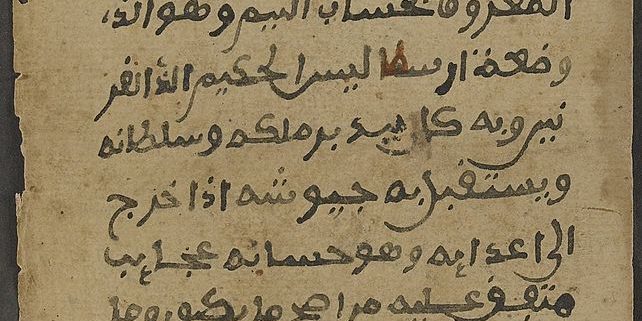 المعروف بحساب النيم وهو الذى
وضعه ارسطاليس الحكيم الذا انفر
نيروبه كان يدبر ملكه وسلطانه
ويستقبل به جيوشه اذا خرج
الى اعدايه وهو حسابه عجايب
متفق عليه من اهل